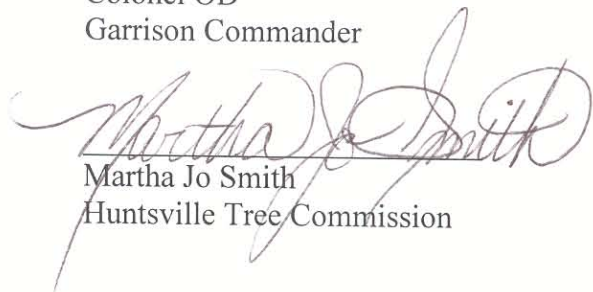 Colonel OD
Garrison Commander
Martha Jo Smith
Martha Jo Smith
Huntsville Tree Commission